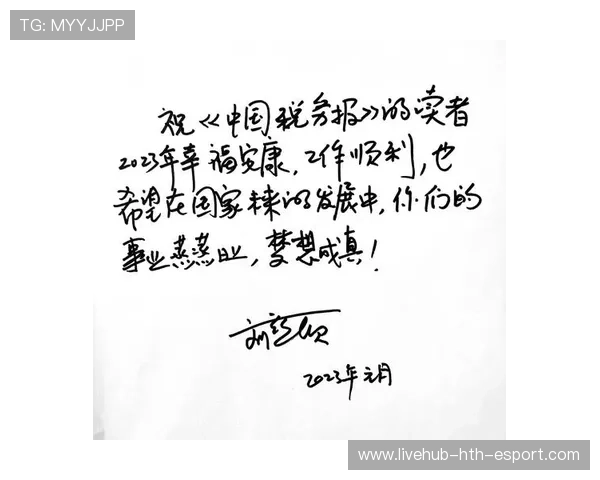 TG: MYYJJPP
祝《中国税务报》的读者
2023年幸福安康,工作顺利,也
希望在国家未来的发展中,你们的
事业蒸蒸日上,梦想成真!
2023年元月
www.livehub-hth-esport.com